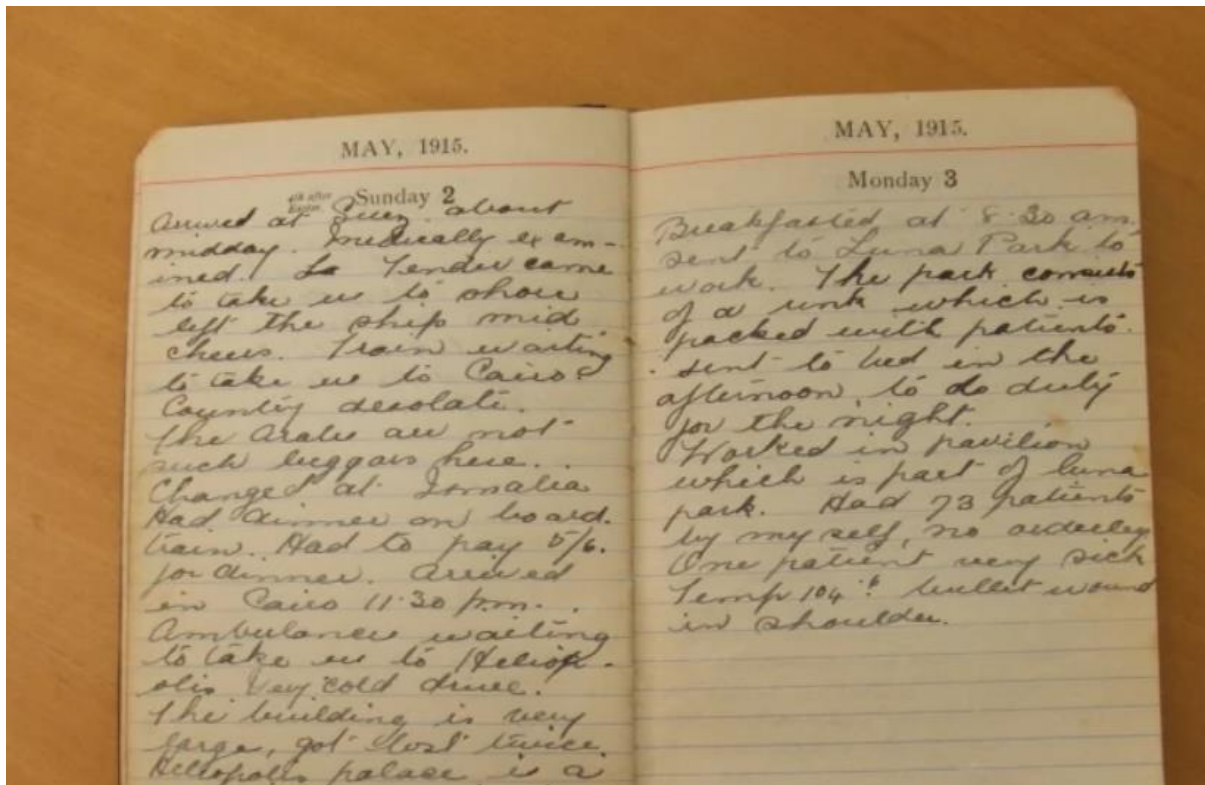 MAY, 1915.
4th after Easter Sunday 2
Arrived at Suez about
midday. Medically exam-
ined. La Tender came
to take us to shore
left the ship mid
cheers. Train waiting
to take us to Cairo
Country desolate.
The Arabs are not
such beggars here.
Changed at Ismalia
Had dinner on board.
train. Had to pay 5/6.
for dinner. Arrived
in Cairo 11.30 p.m.
Ambulances waiting
to take us to Heliop-
olis Very cold drive.
The building is very
large, got lost twice.
Heliopolis palace is a
MAY, 1915.
Monday 3
Breakfasted at 8.30 am.
sent to Luna Park to
work. The park consists
of a rink which is
packed with patients.
sent to bed in the
afternoon, to do duty
for the night.
Worked in pavilion
which is part of luna
park. Had 73 patients
by my self, no orderley
One patient very sick
Temp 104.6 bullet wound
in shoulder.